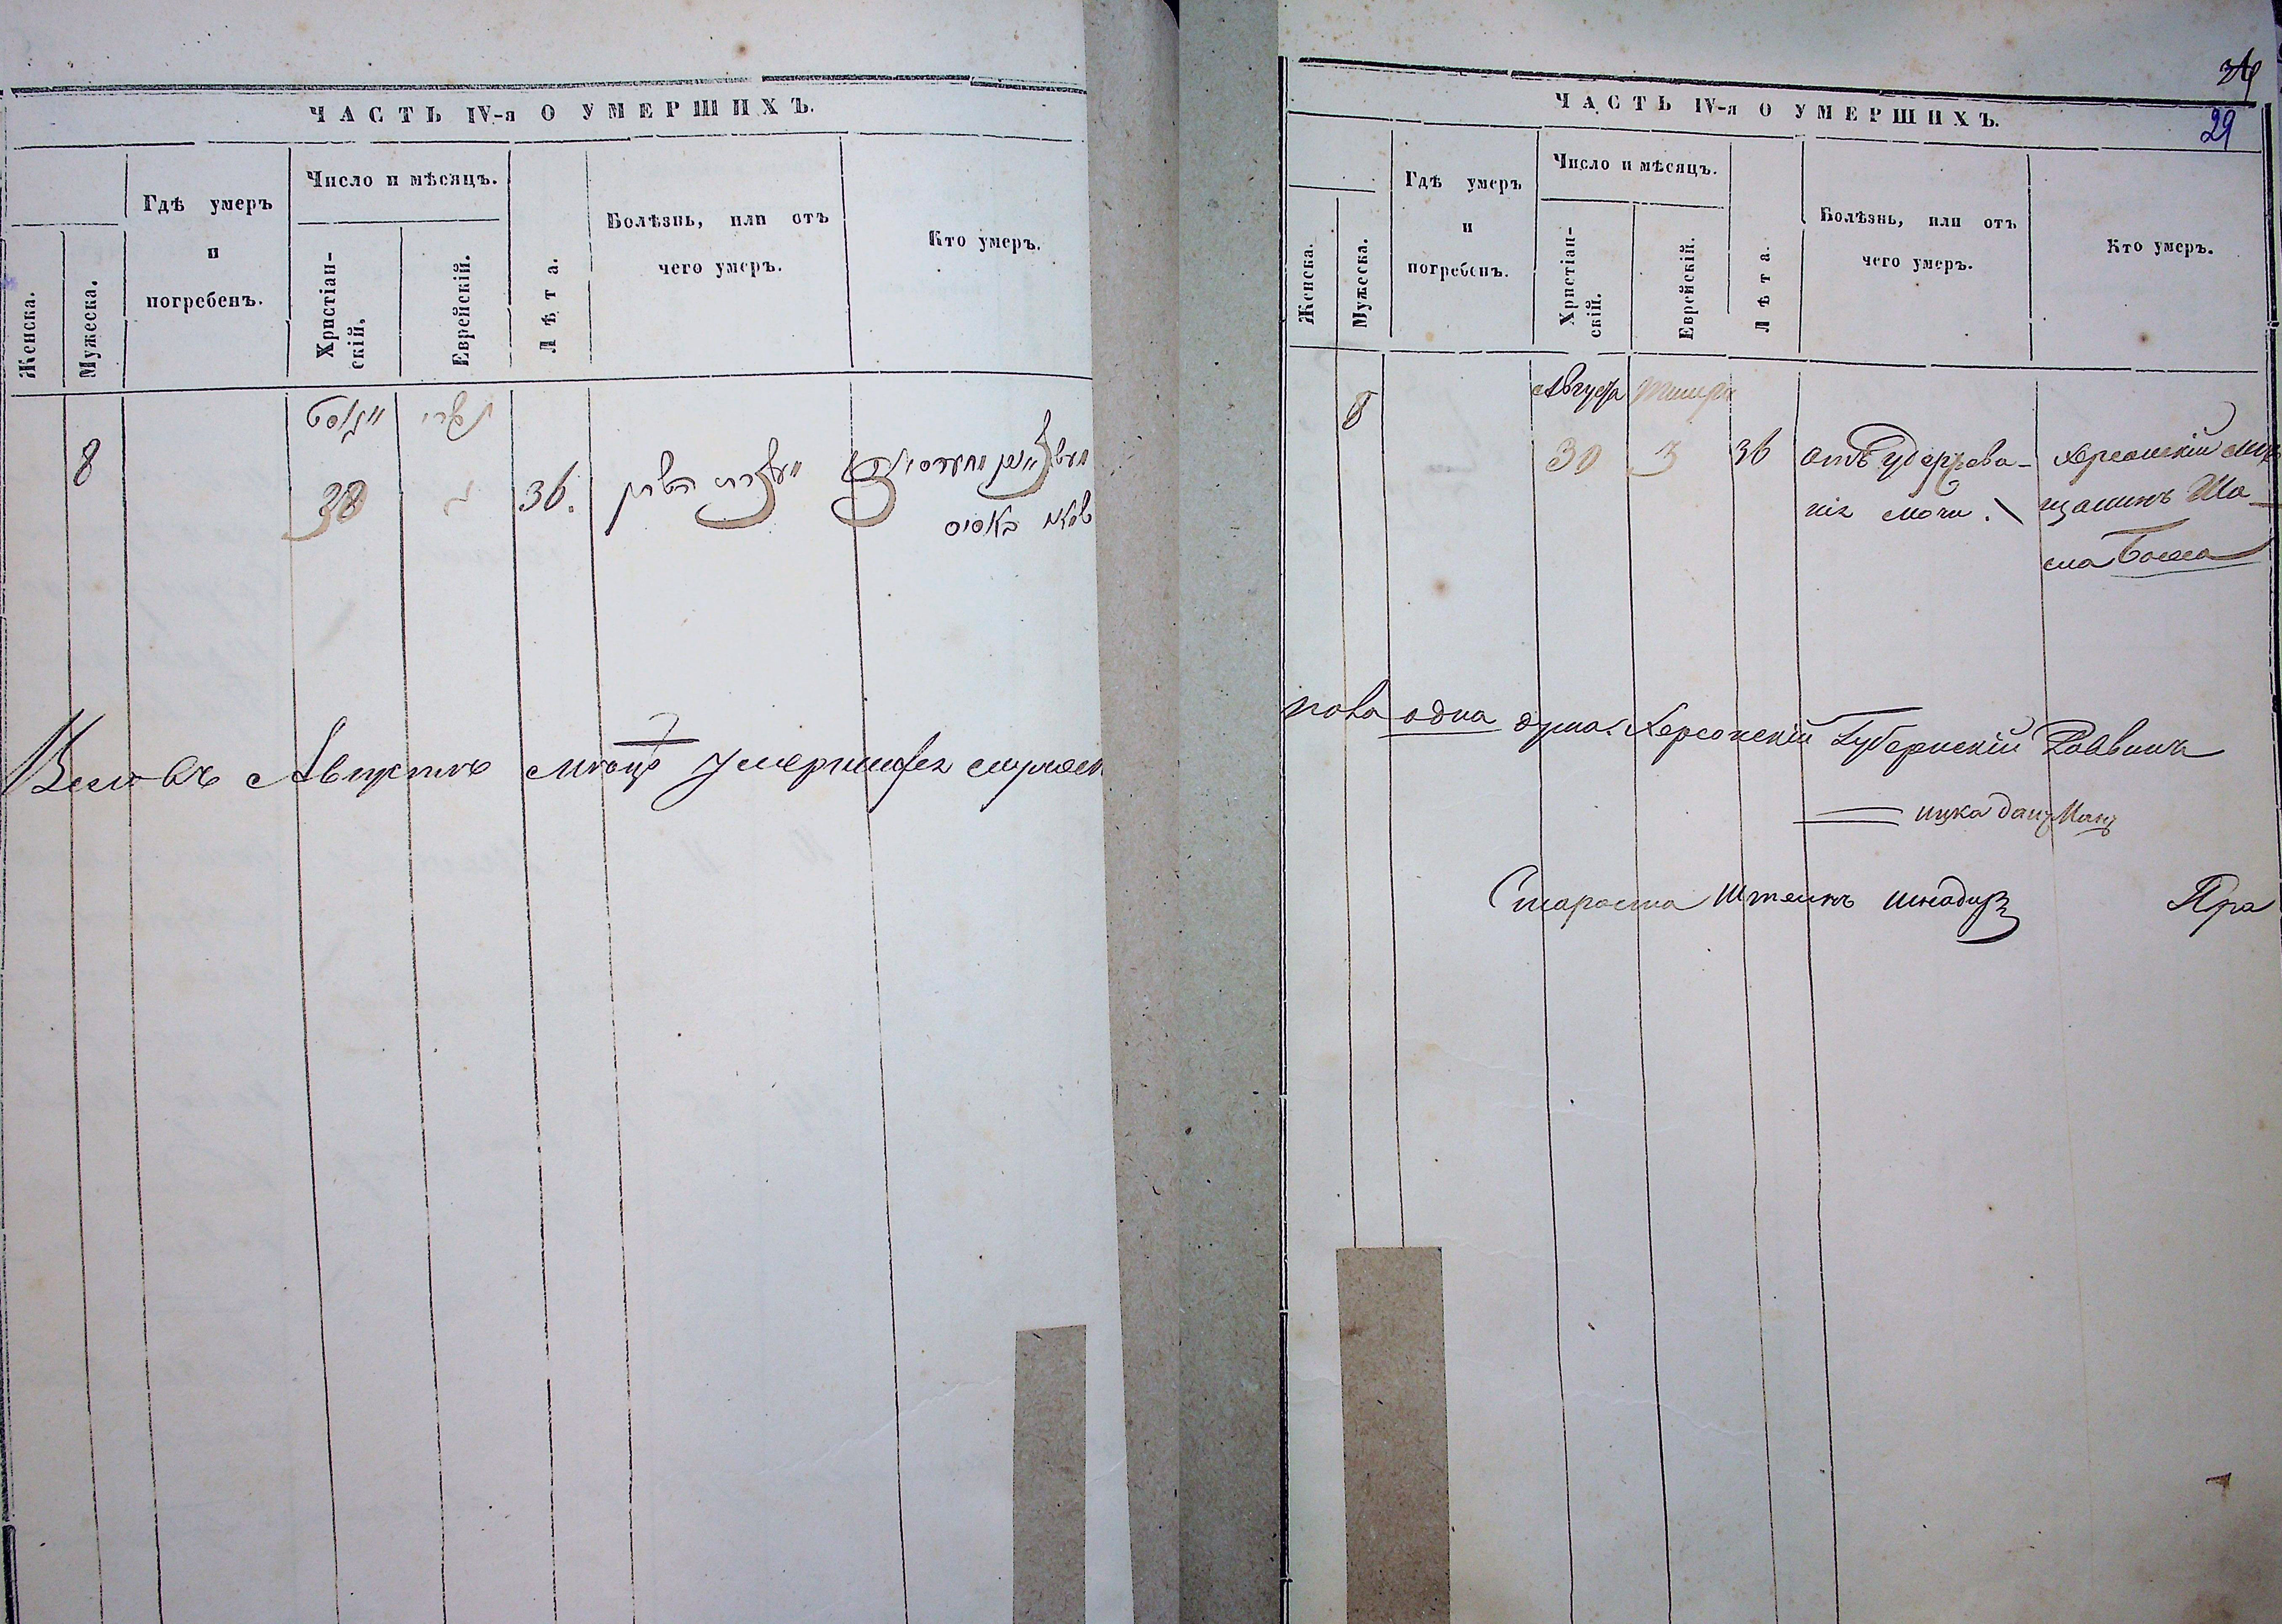 ЧАСТЬ IV-я О УМЕРШИХЪ.
Женска.
Мужеска.
Гдѣ умеръ
и
погребенъ.
Число и мѣсяцъ.
Христіан-
скій.
Еврейскій.
Лѣта.
Болѣзнь, или отъ
чего умеръ.
Кто умеръ.
8
אויגוסט
תשרי
30
ג
36.
Всего въ Августѣ мѣсяцѣ умершихъ
34
29
ЧАСТЬ IV-я О УМЕРШИХЪ.
Женска.
Мужеска.
Гдѣ умеръ
и
погребенъ.
Число и мѣсяцъ.
Христіан-
скій.
Еврейскій.
Лѣта.
Болѣзнь, или отъ
чего умеръ.
Кто умеръ.
8
Августа
Тишри
30
3
36
отъ удержова-
нія мочи.
Херсонскій мѣ-
щанинъ
пола одна душа. Херсонскій Губернскій Раввинъ
ицка
Староста Штеинъ
Пра